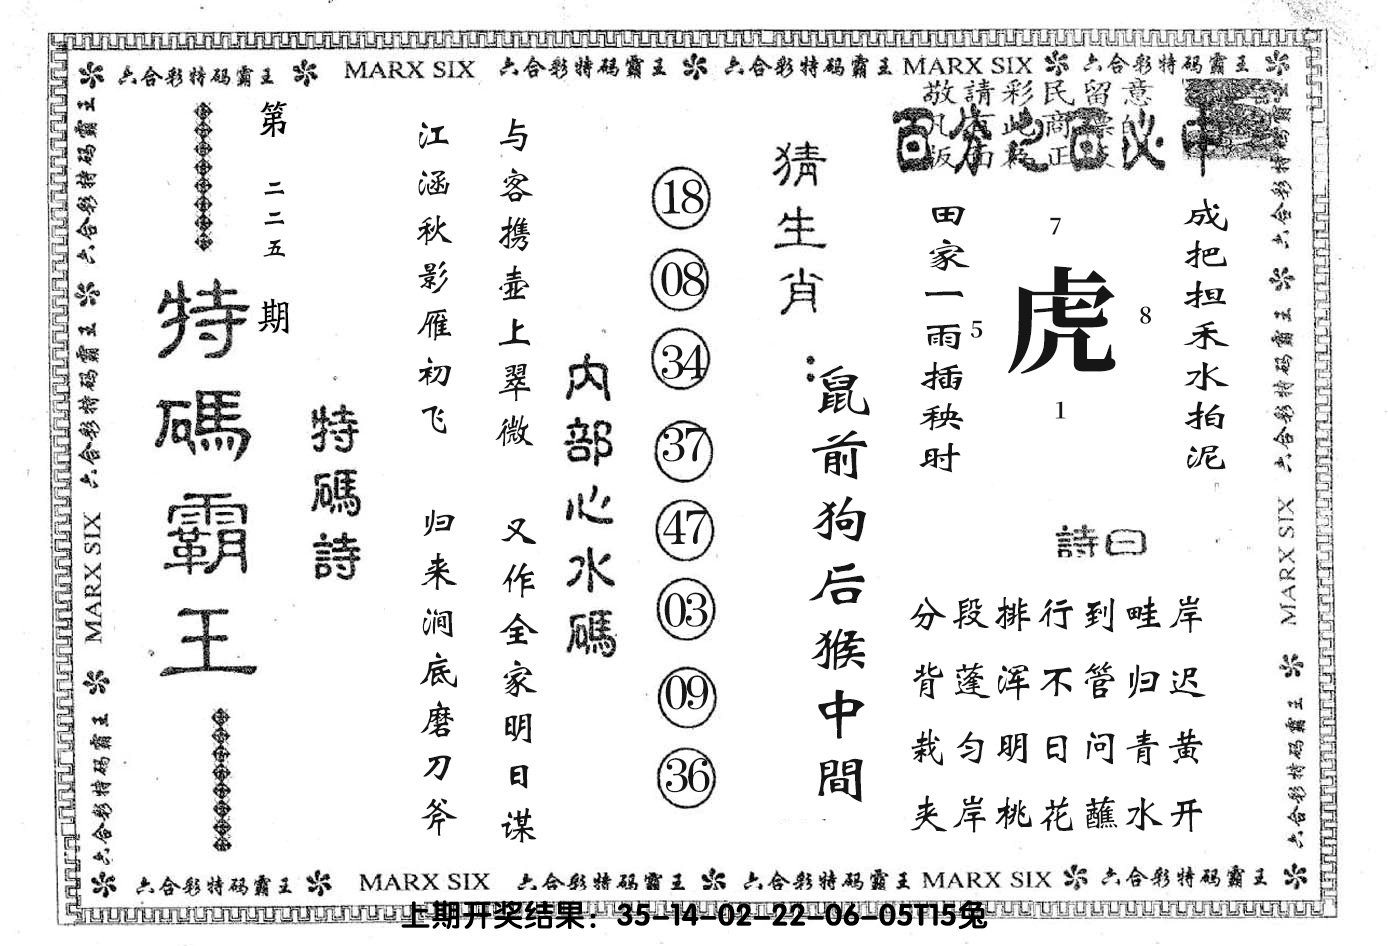 六合彩特码霸王 MARX SIX 六合彩特码霸王 六合彩特码霸王 MARX SIX 六合彩特码霸王
敬請彩民留意
百分之百必中
成把担禾水拍泥
田家一雨插秧时
7
虎
5
8
1
詩曰
分段排行到畦岸
背蓬浑不管归迟
栽匀明日问青黄
夹岸桃花蘸水开
猜生肖:
鼠前狗后猴中間
18
08
34
37
47
03
09
36
内部心水碼
与客携壶上翠微 又作全家明日谋
江涵秋影雁初飞 归来涧底磨刀斧
特碼詩
第二二五期
特碼霸王
六合彩特码霸王 六合彩特码霸王 MARX SIX 六合彩特码霸王
六合彩特码霸王 六合彩特码霸王 MARX SIX 六合彩特码霸王
六合彩特码霸王 MARX SIX 六合彩特码霸王 六合彩特码霸王 MARX SIX 六合彩特码霸王
上期开奖结果：35-14-02-22-06-05T15兔